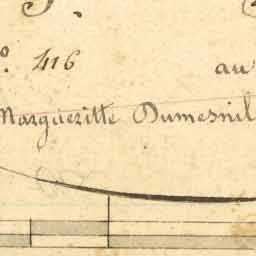 º. 416 au
Margueritte Dumesnil